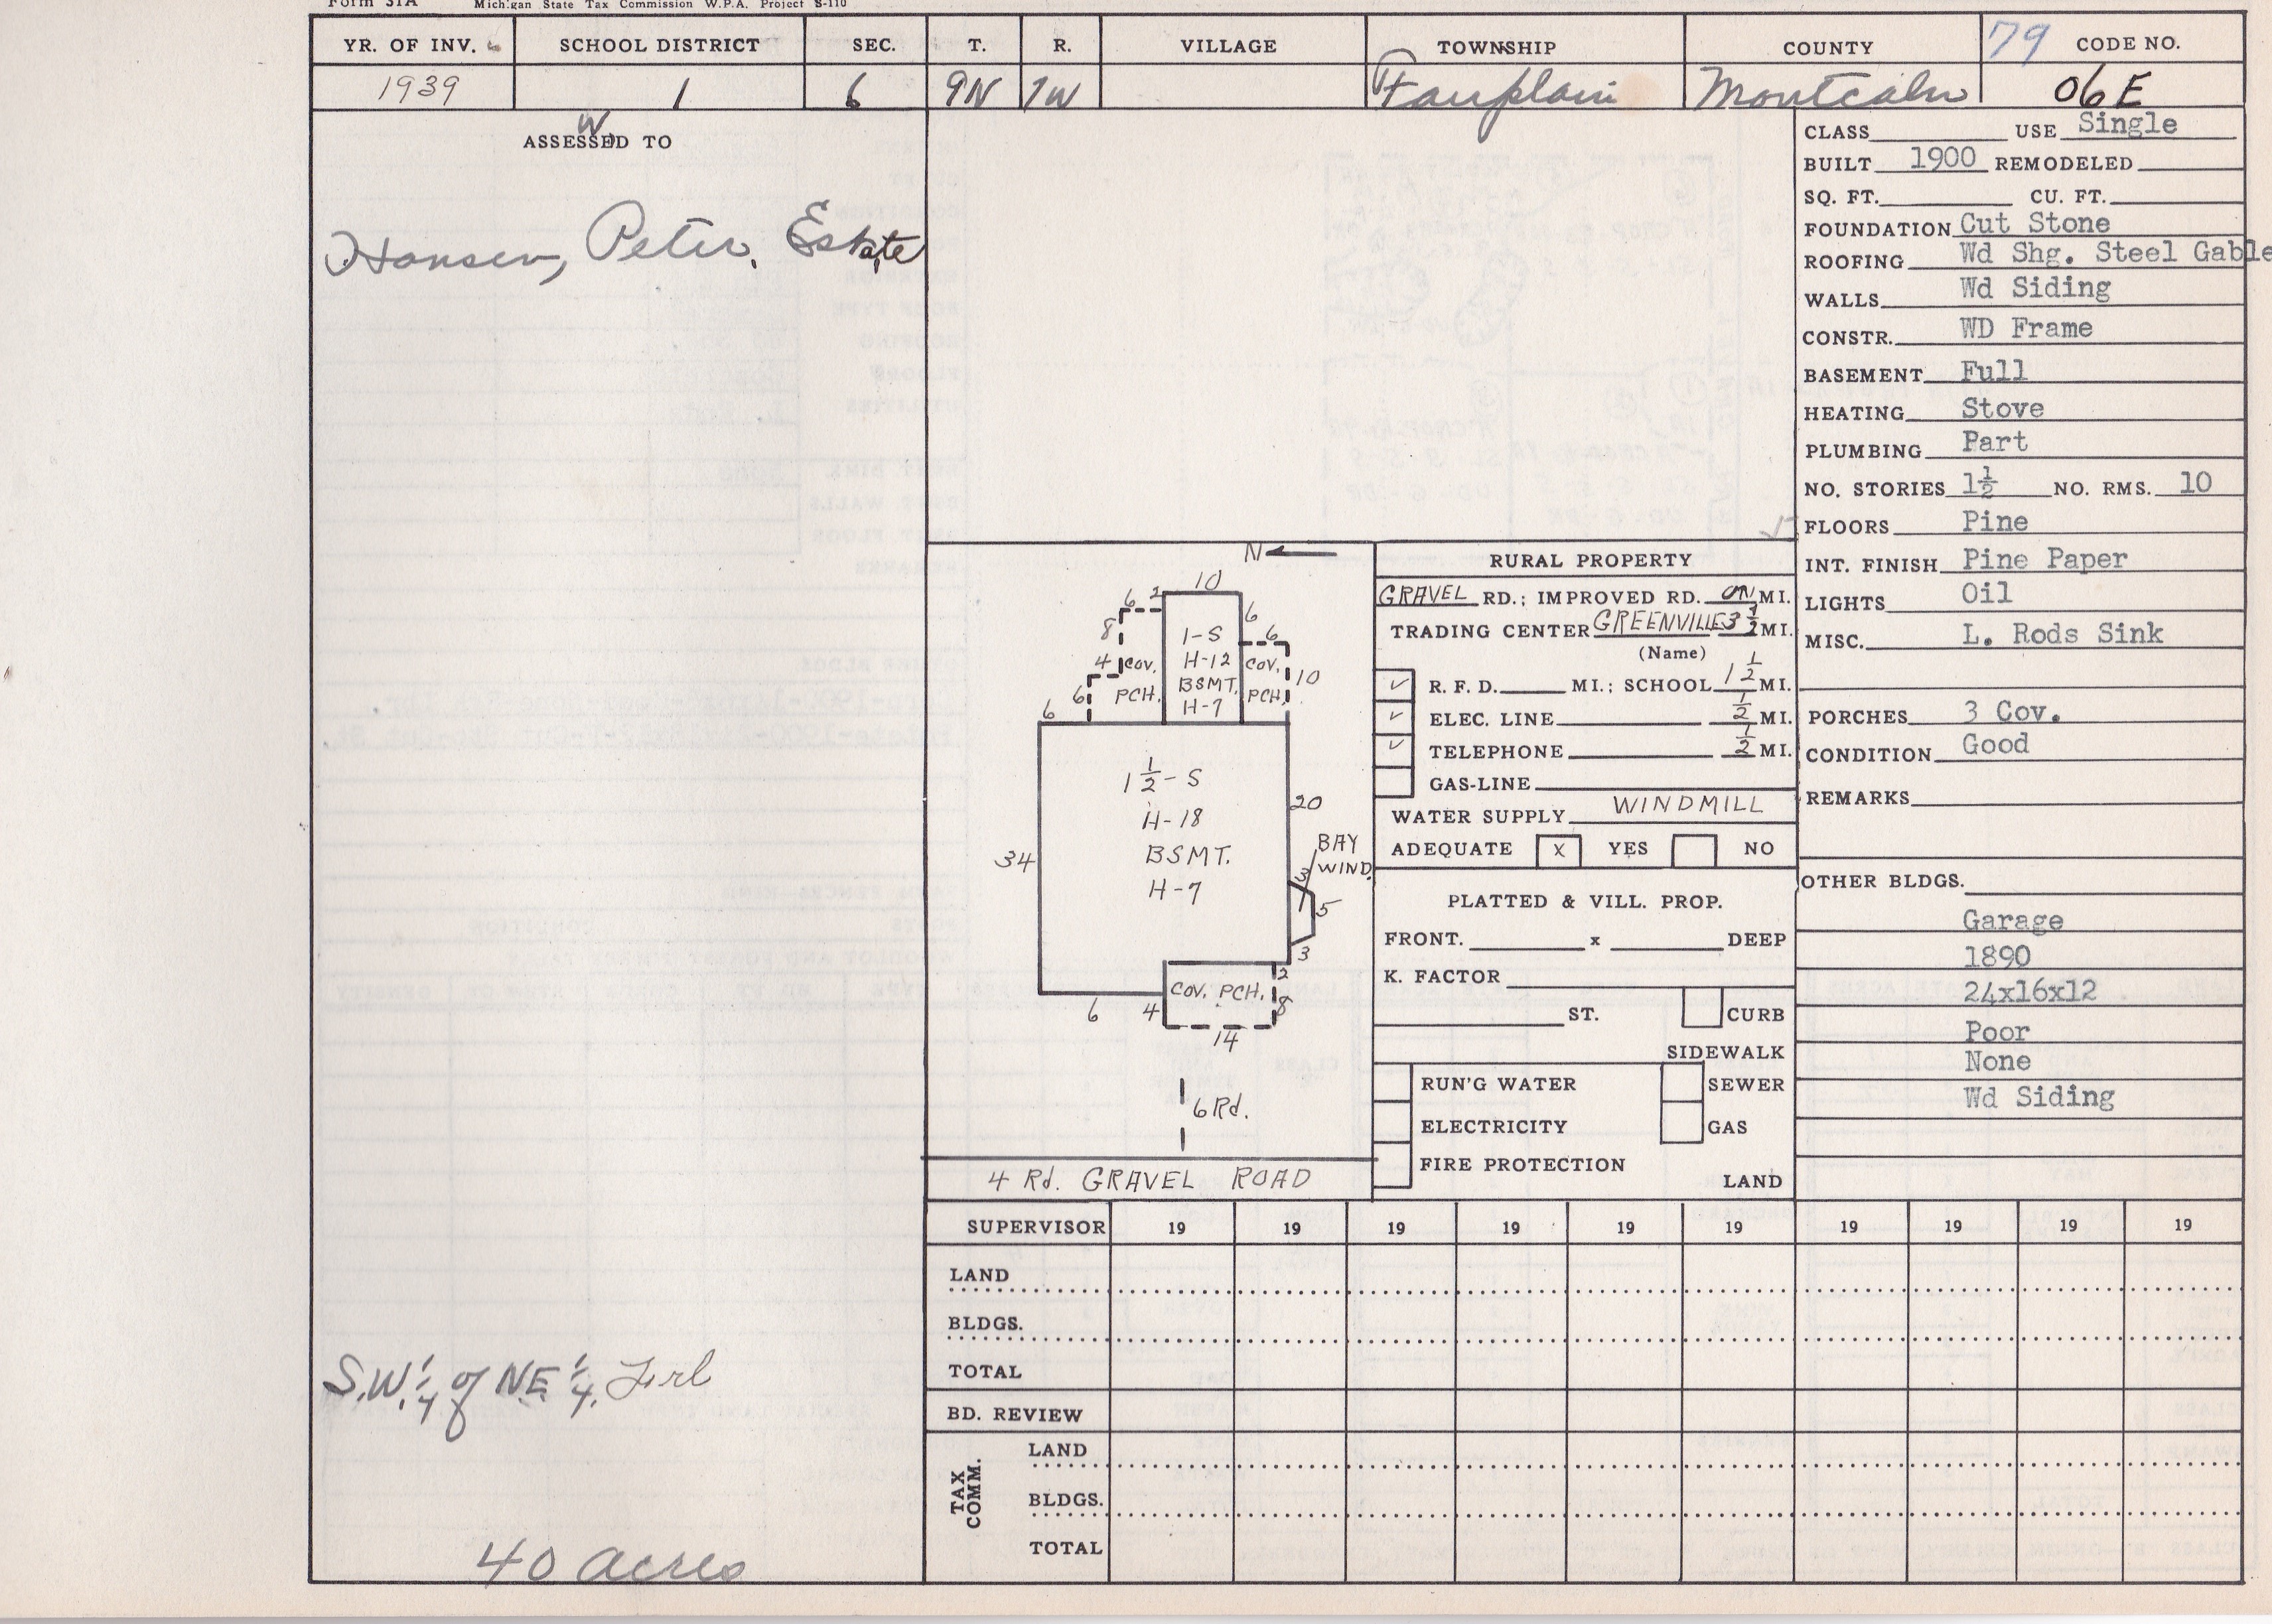 Form 31A Michigan State Tax Commission W.P.A. Project S-110
YR. OF INV. SCHOOL DISTRICT SEC. T. R. VILLAGE TOWNSHIP COUNTY 79 CODE NO.
1939 1 6 9N 7W Fairplain Montcalm 06E
ASSESSED TO
W.
Hansen, Peter, Estate
S.W. 1/4 of NE 1/4, Frl
40 acres
N
10
6 2
8
4
6
6
COV.
PCH.
1-S
H-12
BSMT.
H-7
6
6
COV.
PCH.
10
1 1/2 - S
H-18
BSMT.
H-7
34
20
BAY
WIND.
3
5
3
2
COV. PCH.
8
6 4
14
6 Rd.
4 Rd. GRAVEL ROAD
RURAL PROPERTY
GRAVEL RD.; IMPROVED RD. ON MI.
TRADING CENTER GREENVILLE 3 1/2 MI.
(Name)
✓ R. F. D. MI.; SCHOOL 1 1/2 MI.
✓ ELEC. LINE 1/2 MI.
✓ TELEPHONE 1/2 MI.
GAS-LINE
WATER SUPPLY WINDMILL
ADEQUATE X YES NO
PLATTED & VILL. PROP.
FRONT. x DEEP
K. FACTOR
ST. CURB
SIDEWALK
RUN'G WATER SEWER
ELECTRICITY GAS
FIRE PROTECTION
LAND
CLASS USE Single
BUILT 1900 REMODELED
SQ. FT. CU. FT.
FOUNDATION Cut Stone
ROOFING Wd Shg. Steel Gable
WALLS Wd Siding
CONSTR. WD Frame
BASEMENT Full
HEATING Stove
PLUMBING Part
NO. STORIES 1½ NO. RMS. 10
FLOORS Pine
INT. FINISH Pine Paper
LIGHTS Oil
MISC. L. Rods Sink
PORCHES 3 Cov.
CONDITION Good
REMARKS
OTHER BLDGS.
Garage
1890
24x16x12
Poor
None
Wd Siding
SUPERVISOR 19 19 19 19 19 19 19 19 19 19
LAND
BLDGS.
TOTAL
BD. REVIEW
TAX COMM.
LAND
BLDGS.
TOTAL